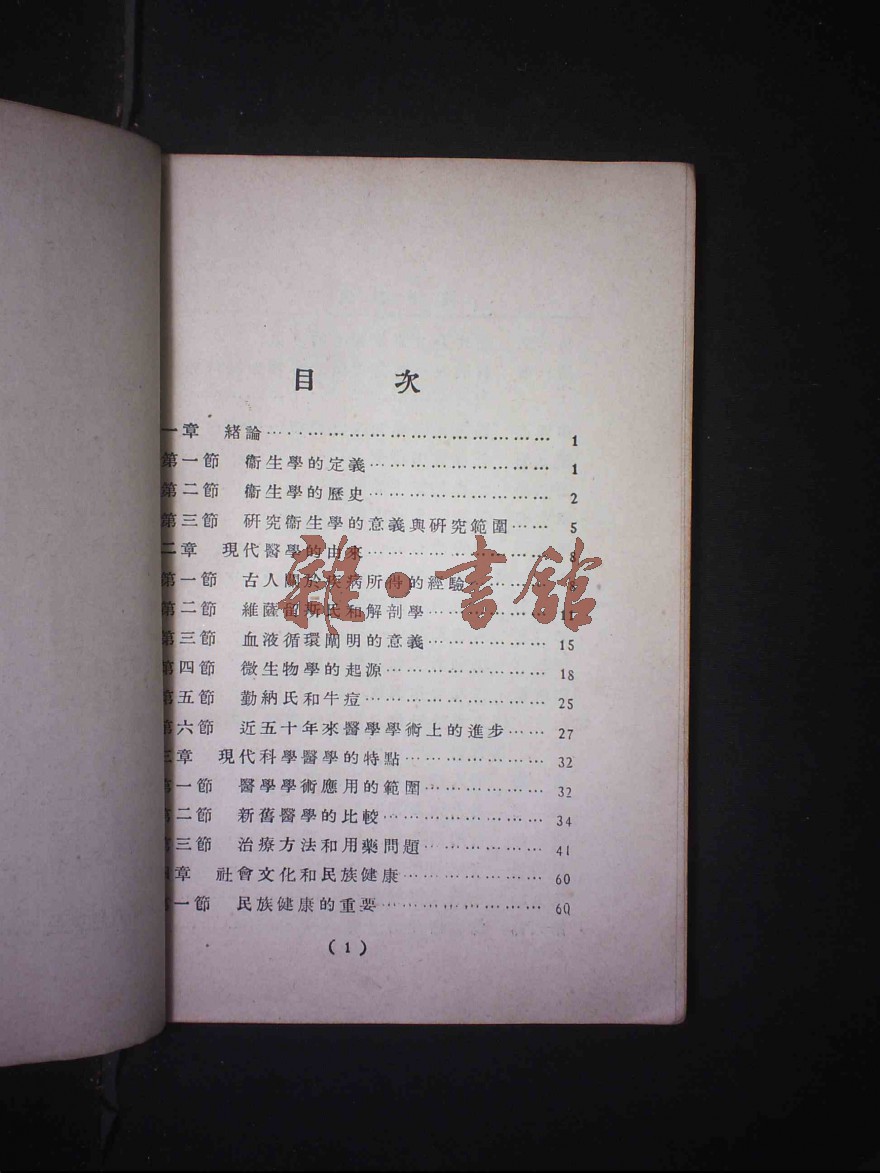 目 次
一章 緒論 1
第一節 衞生學的定義 1
第二節 衞生學的歷史 2
第三節 研究衞生學的意義與研究範圍 5
二章 現代醫學的由來 8
第一節 古人關於疾病所得的經驗 8
第二節 維薩留斯氏和解剖學 11
第三節 血液循環闡明的意義 15
第四節 微生物學的起源 18
第五節 勤納氏和牛痘 25
第六節 近五十年來醫學學術上的進步 27
三章 現代科學醫學的特點 32
第一節 醫學學術應用的範圍 32
第二節 新舊醫學的比較 34
第三節 治療方法和用藥問題 41
章 社會文化和民族健康 60
一節 民族健康的重要 60
(1)
雜·書館